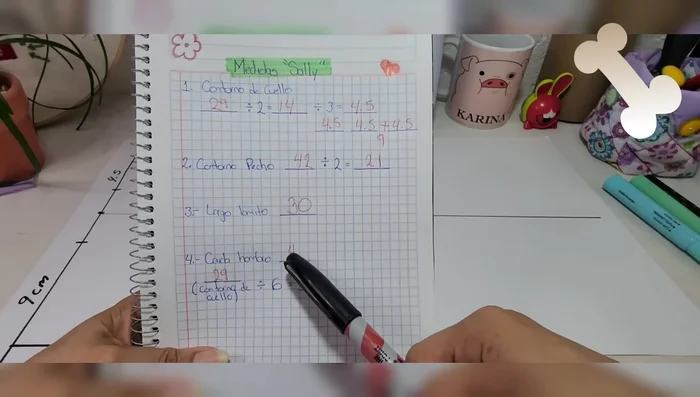 Medidas "Sally"
KARINA
1. Contorno de Cuello
29 ÷ 2 = 14 ÷ 3 = 4.5
4.5 4.5 + 4.5
9
2. Contorno Pecho 42 ÷ 2 = 21
3.- Largo lomito 30
4.- Caida hombro 4
29
(contorno de ÷ 6
cuello)
4.5
9 cm